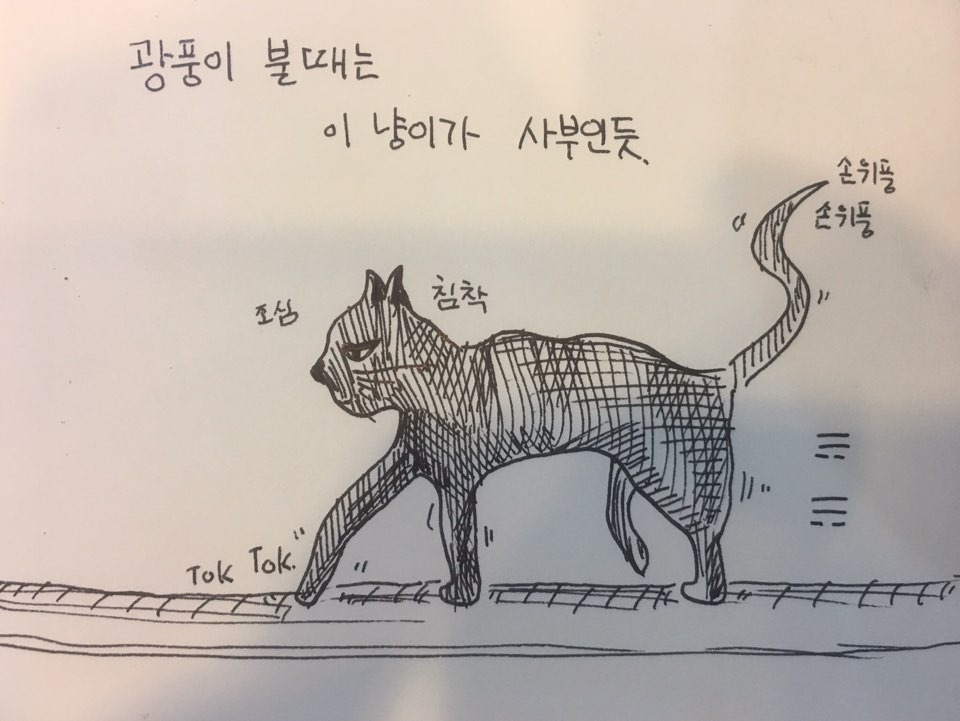 광풍이 불때는
이 냥이가 사부인듯.
손위풍
손위풍
조심
침착
TOK TOK.